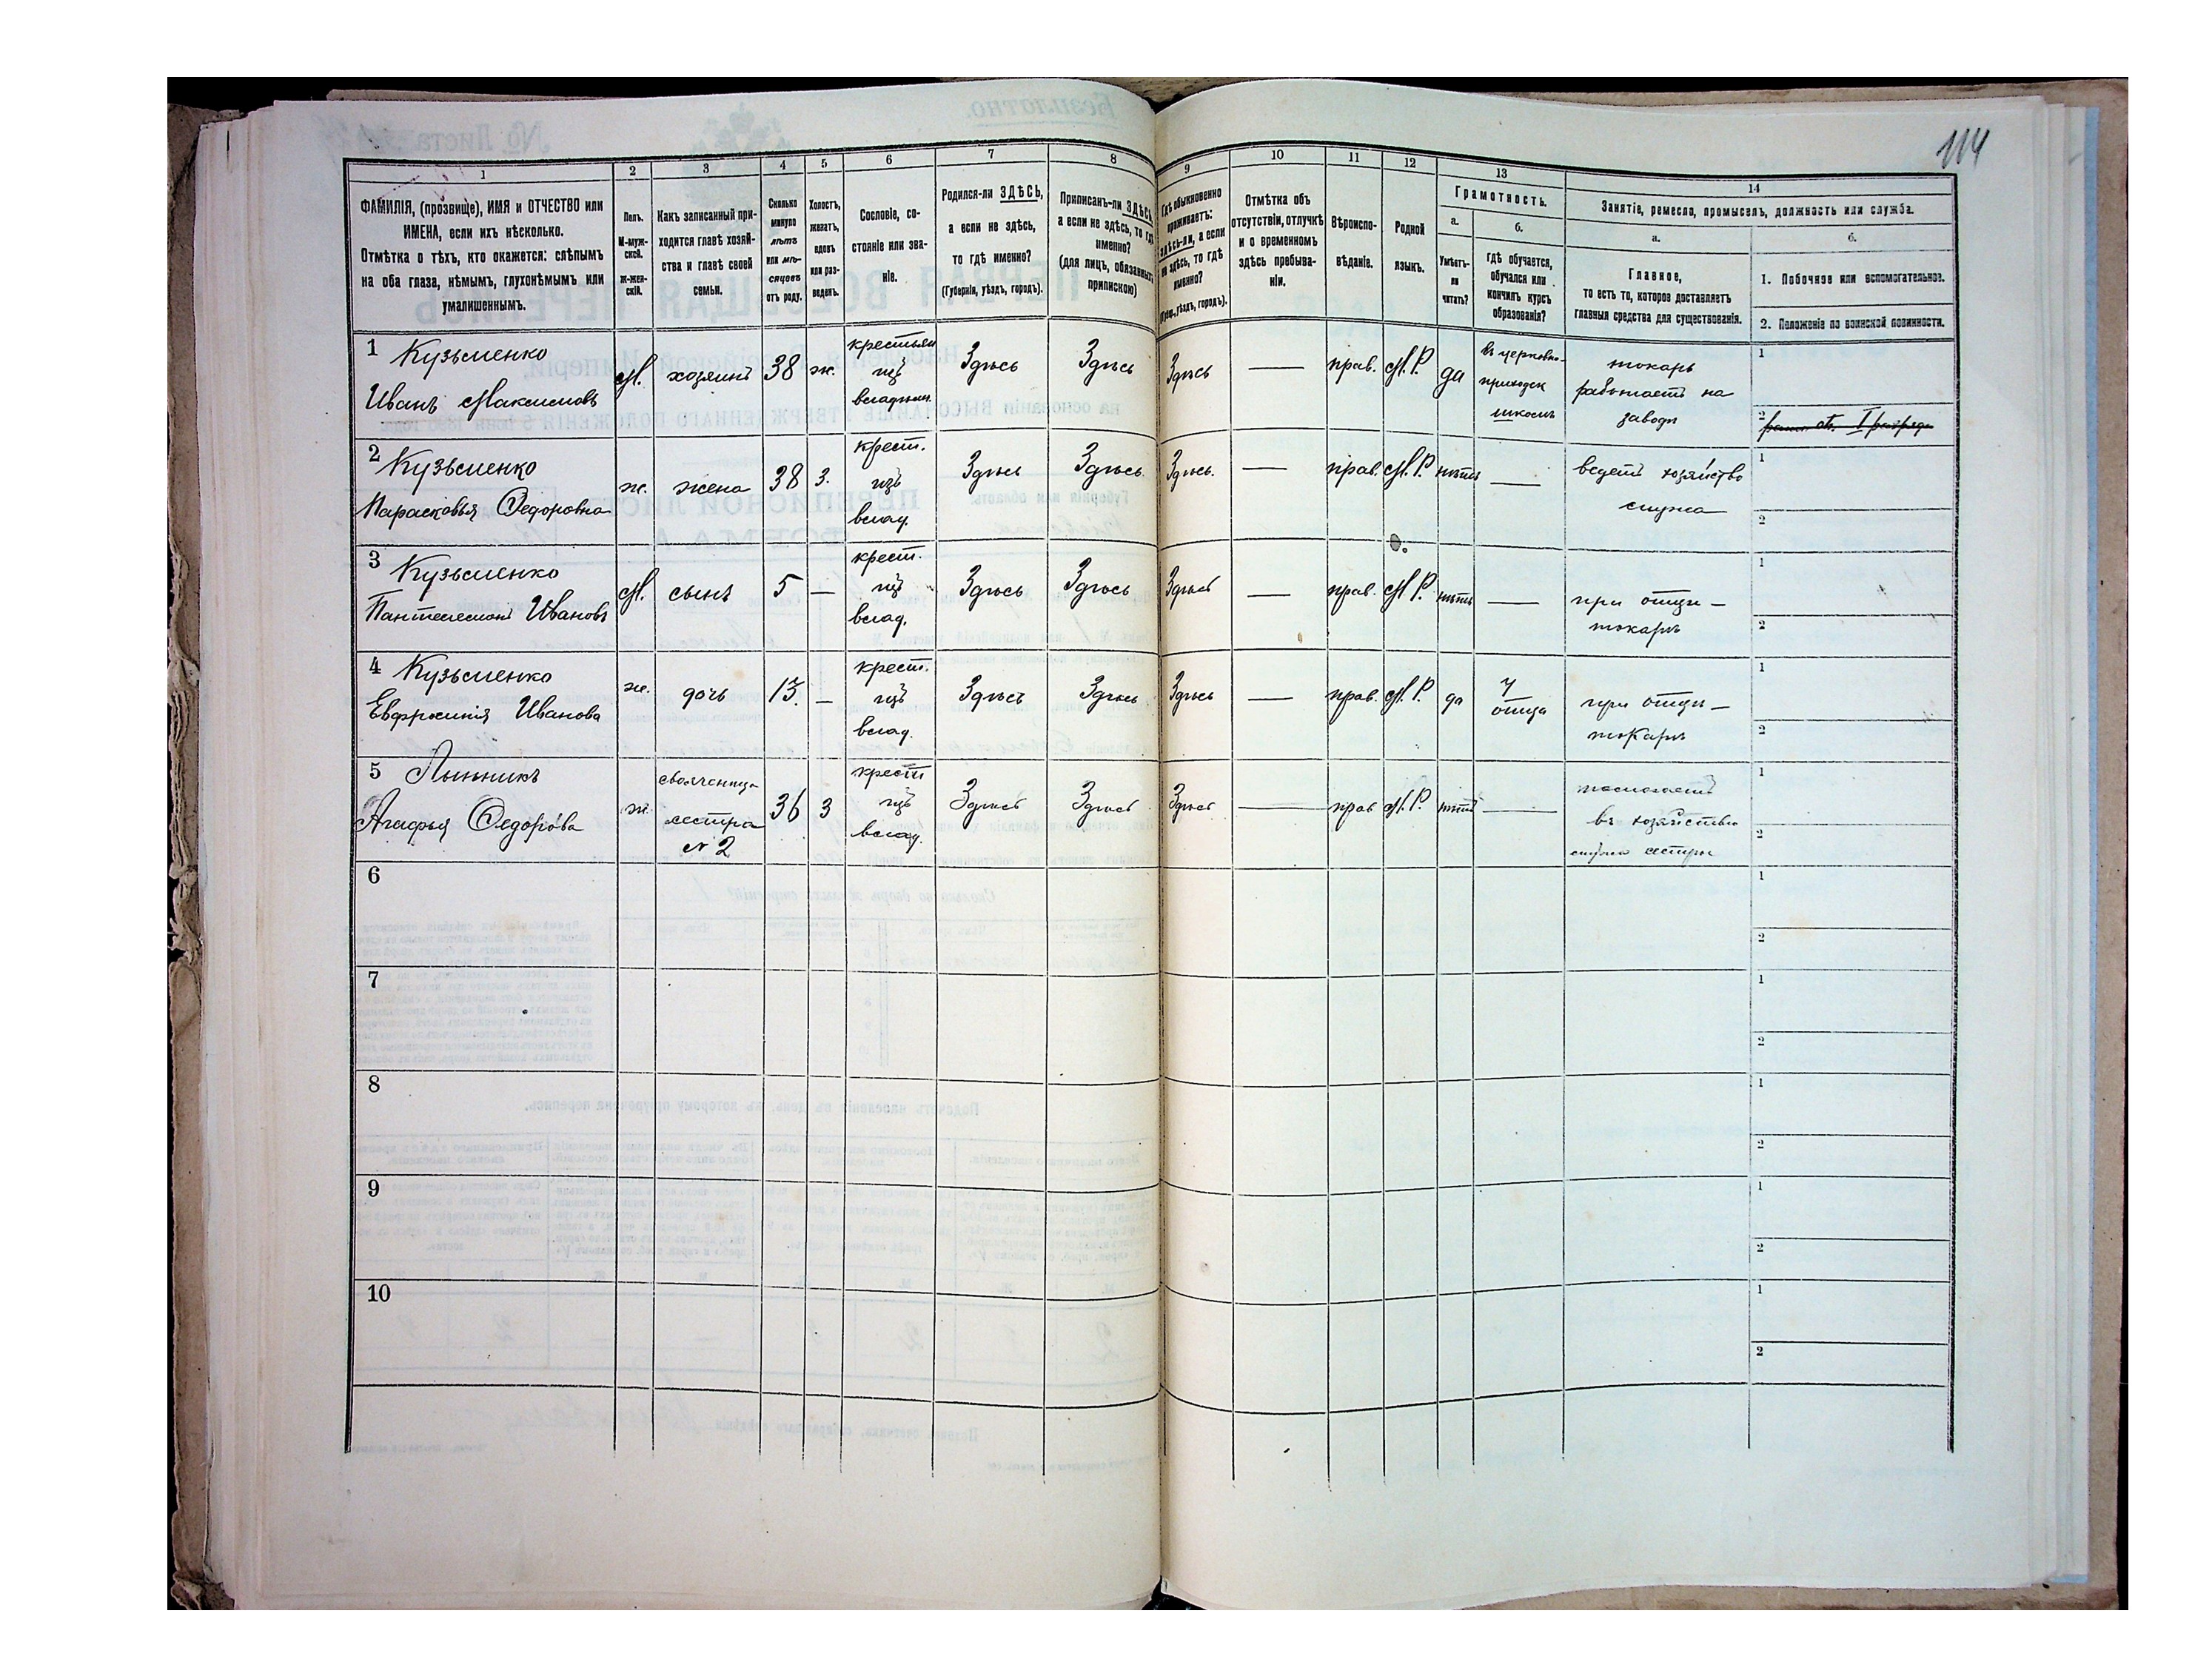 114
1
2
3
4
5
6
7
8
9
10
11
12
13
14
ФАМИЛІЯ, (прозвище), ИМЯ и ОТЧЕСТВО или
ИМЕНА, если ихъ нѣсколько.
Отмѣтка о тѣхъ, кто окажется: слѣпымъ
на оба глаза, нѣмымъ, глухонѣмымъ или
умалишеннымъ.
Полъ.
М-муж-
ской.
Ж-жен-
скій.
Какъ записанный при-
ходится главѣ хозяй-
ства и главѣ своей
семьи.
Сколько
минуло
лѣтъ
или мѣ-
сяцовъ
отъ роду.
Холостъ,
женатъ,
вдовъ
или раз-
веденъ.
Сословіе, со-
стояніе или зва-
ніе.
Родился-ли ЗДѢСЬ,
а если не здѣсь,
то гдѣ именно?
(Губернія, уѣздъ, городъ).
Приписанъ-ли ЗДѢСЬ,
а если не здѣсь, то гдѣ
именно?
(для лицъ, обязанныхъ
припискою)
Гдѣ обыкновенно
проживаетъ:
здѣсь-ли, а если
не здѣсь, то гдѣ
именно?
(Губ., уѣздъ, городъ).
Отмѣтка объ
отсутствіи, отлучкѣ
и о временномъ
здѣсь пребыва-
ніи.
Вѣроиспо-
вѣданіе.
Родной
языкъ.
Грамотность.
а.
Умѣетъ-
ли
читать?
б.
гдѣ обучается,
обучался или
кончилъ курсъ
образованія?
Занятіе, ремесло, промыселъ, должность или служба.
а.
Главное,
то есть то, которое доставляетъ
главныя средства для существованія.
б.
1. Побочное или вспомогательное.
2. Положеніе по воинской повинности.
1 Кузьменко
Иванъ Максимовъ
М.
хозяинъ
38
ж.
крестьян
изъ
владѣльч.
Здѣсь
Здѣсь
Здѣсь
—
прав.
М.Р.
да
въ церковно-
приходск
школѣ
токарь
работаетъ на
заводѣ
1
2
2 Кузьменко
Парасковья Федоровна
ж.
жена
38
З.
крест.
изъ
влад.
Здѣсь
Здѣсь.
Здѣсь.
—
прав.
М.Р.
нѣтъ
—
ведетъ хозяйство
мужа
1
2
3 Кузьменко
Пантелеемонъ Ивановъ
М.
сынъ
5
—
крест.
изъ
влад.
Здѣсь
Здѣсь
Здѣсь
—
прав.
М.Р.
нѣтъ
—
при отцѣ —
токарѣ
1
2
4 Кузьменко
Евфросинія Иванова
ж.
дочь
13.
—
крест.
изъ
влад.
Здѣсь
Здѣсь
Здѣсь
—
прав.
М.Р.
да
у
отца
при отцѣ —
токарѣ
1
2
5 Линникъ
Агафья Федорова
ж.
своячениця
сестра
N 2
36
З
крест
изъ
влад.
Здѣсь
Здѣсь
Здѣсь
—
прав
М.Р.
нѣтъ
—
помогаетъ
въ хозяйствѣ
мужа сестры
1
2
6
1
2
7
1
2
8
1
2
9
1
2
10
1
2